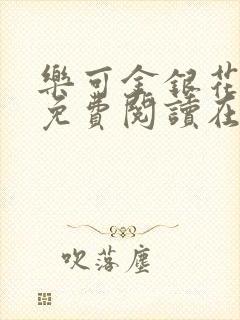 樂可金銀花
免費閱讀在
吹落塵